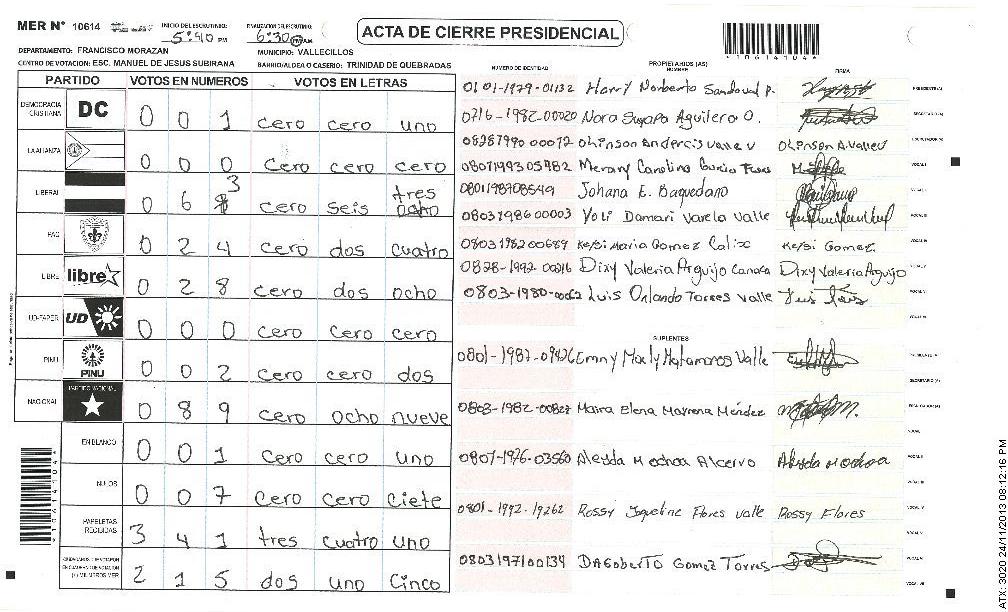 MER N° 10614
INICIO DEL ESCRUTINIO: 5:40 PM
FINALIZACION DEL ESCRUTINIO: 6:30 PM
ACTA DE CIERRE PRESIDENCIAL
*1061410 4*
DEPARTAMENTO: FRANCISCO MORAZAN
MUNICIPIO: VALLECILLOS
CENTRO DE VOTACION: ESC. MANUEL DE JESUS SUBIRANA
BARRIO/ALDEA O CASERIO: TRINIDAD DE QUEBRADAS
PARTIDO VOTOS EN NUMEROS VOTOS EN LETRAS
DEMOCRACIA CRISTIANA DC 0 0 1 cero cero uno
LA ALIANZA 0 0 0 cero cero cero
LIBERAL 0 6 8 3 cero seis tres ocho
PAC 0 2 4 cero dos cuatro
LIBRE libre 0 2 8 cero dos ocho
UD-FAPER UD 0 0 0 cero cero cero
PINU PINU 0 0 2 cero cero dos
NACIONAL PARTIDO NACIONAL 0 8 9 cero ocho nueve
EN BLANCO 0 0 1 cero cero uno
NULOS 0 0 7 cero cero ciete
PAPELETAS RECIBIDAS 3 4 1 tres cuatro uno
2 1 5 dos uno Cinco
NUMERO DE IDENTIDAD PROPIETARIOS (AS) NOMBRE FIRMA
0101-1979-01132 Harry Norberto Sandoval P. PRESIDENTE(A)
0716-1982-00020 Nora Suyapa Aguilera O. SECRETARIO(A)
Ohinson A Valle V ESCRUTADOR(A)
Carolina VOCAL I
Johana E. Baquedano VOCAL II
0803198600003 Yoli Damari Varela Valle VOCAL III
0803198200689 Kelsi Maria Gomez Calix Kelsi Gomez. VOCAL IV
0828-1992-00216 Dixy Valeria Arguijo Dixy Valeria Arguijo VOCAL V
0803-1980- Luis Orlando Torres Valle VOCAL VI
VOCAL VII
SUPLENTES
0801-1987-09426 Valle PRESIDENTE(A)
SECRETARIO(A)
0803-1982-00827 Maira Elena Mairena Méndez ESCRUTADOR(A)
VOCAL I
0801-1976-03560 Aleyda Mochoa VOCAL II
0801-1992-19262 Rossy Flores Valle Rossy Flores VOCAL IV
0803197100134 DAGoberTo Gomez Torres VOCAL V
VOCAL VII
ATX-3020 24/11/2013 08:12:16 PM